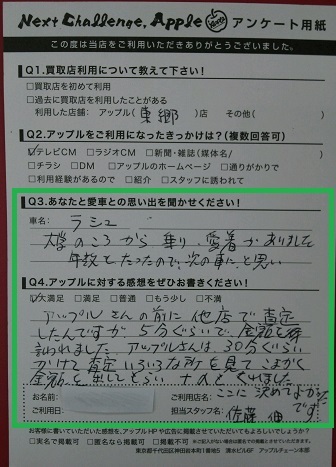 Next Challenge, Apple アンケート用紙
この度は当店をご利用いただきありがとうございました。
Q1.買取店利用について教えて下さい!
□買取店を初めて利用
□過去に買取を利用したことがある
利用した店舗: アップル( 東郷 )店 その他( )
Q2.アップルをご利用になったきっかけは?(複数回答可)
☑テレビCM □ラジオCM □新聞・雑誌(媒体名/ )
□チラシ □DM □アップルのホームページ □通りがかりで
□利用経験があるので □紹介 □スタッフに誘われて
Q3.あなたと愛車との思い出を聞かせください!
車名: ラシュ
大学のころから乗り、愛着がありました
年数もたったので、次の車にと思い
Q4.アップルに対する感想をぜひお書きください!
☑大満足 □満足 □普通 □もう少し □不満
アップルさんの前に他店で査定
したんですが、5分ぐらいで、金額を
言われました。アップルさんは、30分ぐらい
かけて査定いろいろな所を見てこまかく
金額を出してもらい
お名前: ここに決めてよかった
ご利用日: ご利用店名: です。
担当スタッフ名: 佐藤
お客様に書いていただいた感想を、アップルHPや広告に掲載させていただいてもよろしいでしょうか?
□実名で掲載可 □匿名なら掲載可 □掲載不可
東京都千代田区神田紺屋町1番地5 清水ビル6F アップルチェーン本部